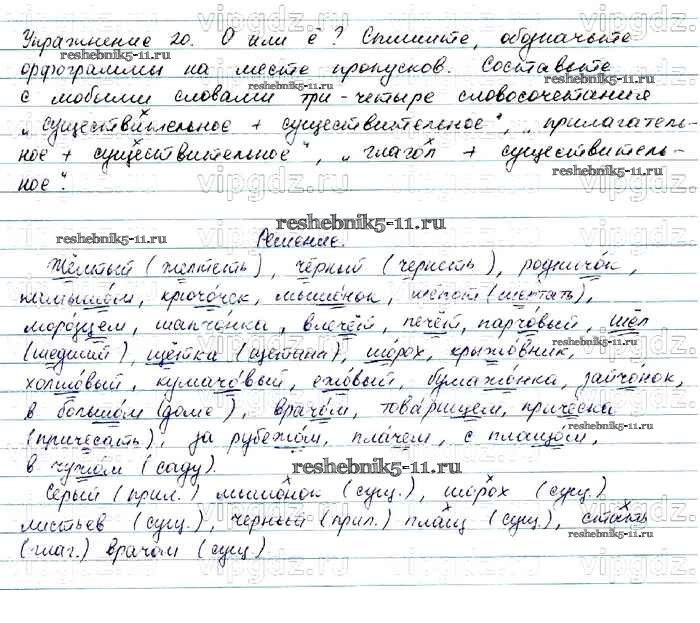 Упражнение 20. О или ё? Спишите, обозначьте
орфограммы на месте пропусков. Составьте
с любыми словами три-четыре словосочетания
„существительное + существительное", „прилагатель-
ное + существительное", „глагол + существитель-
ное".
reshebnik5-11.ru
Решение.
Жёлтый (желтеть), чёрный (чернеть), родничок,
камышом, крючочек, мышонок, шёпот (шептать),
морозцем, шапчонка, влечёт, печёт, парчовый, шёл
(шедший), щётка (щетина), шорох, крыжовник,
холщовый, кумачовый, ежовый, бумажонка, зайчонок,
в большом (доме), врачом, товарищем, причёска
(причесать), за рубежом, плачем, с плащом,
в чужом (саду).
Серый (прил.) мышонок (сущ.), шорох (сущ.)
листьев (сущ.), черный (прил.) плащ (сущ.), стать
(глаг.) врачом (сущ.)